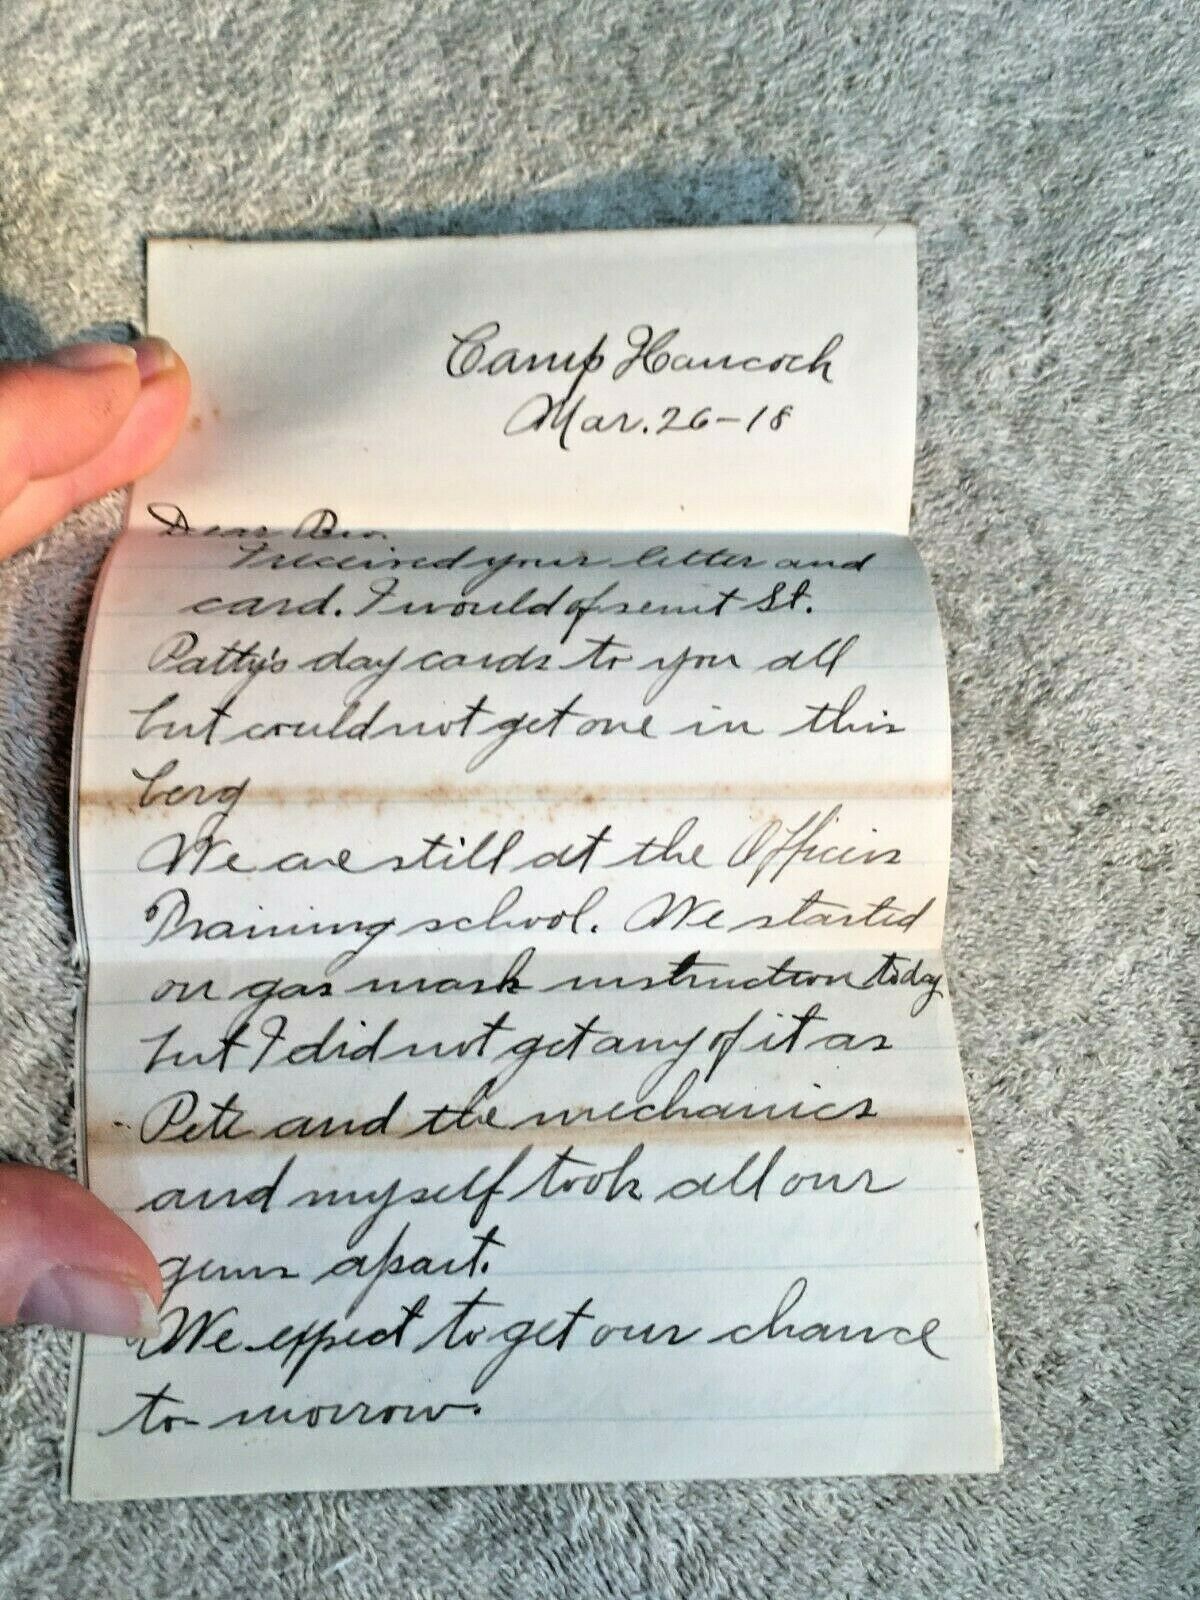 Camp Hancock
Mar. 26-18
Dear Bro.
I received your letter and
card. I would of sent St.
Patty's day cards to you all
but could not get one in this
berg
We are still at the Officers
Training school. We started
on gas mask instruction today
but I did not get any of it as
Pete and the mechanics
and myself took all our
guns apart.
We expect to get our chance
to-morrow.